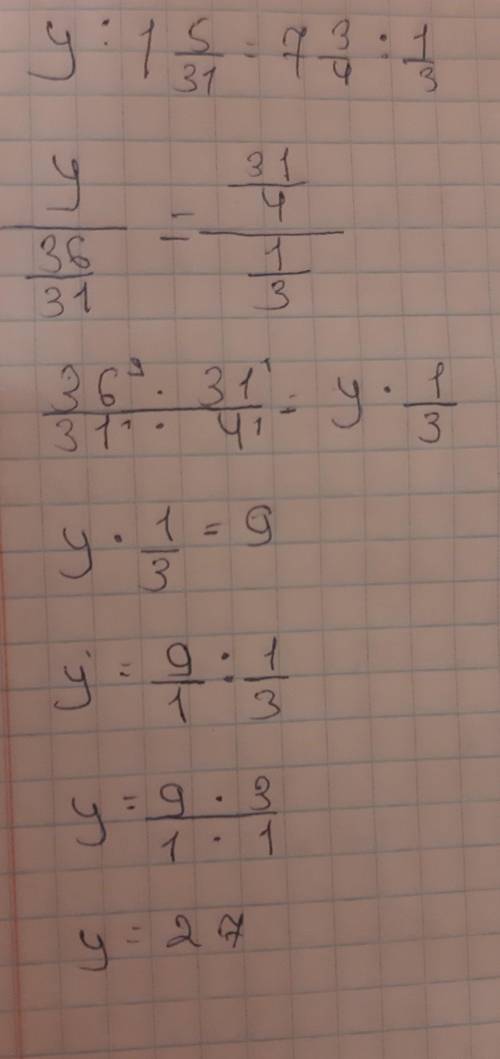 y : 1 5/31 = 7 3/4 : 1/3
y / (36/31) = (31/4) / (1/3)
(36⁹ · 31¹) / (31¹ · 4¹) = y · 1/3
y · 1/3 = 9
y = 9/1 : 1/3
y = (9 · 3) / (1 · 1)
y = 27